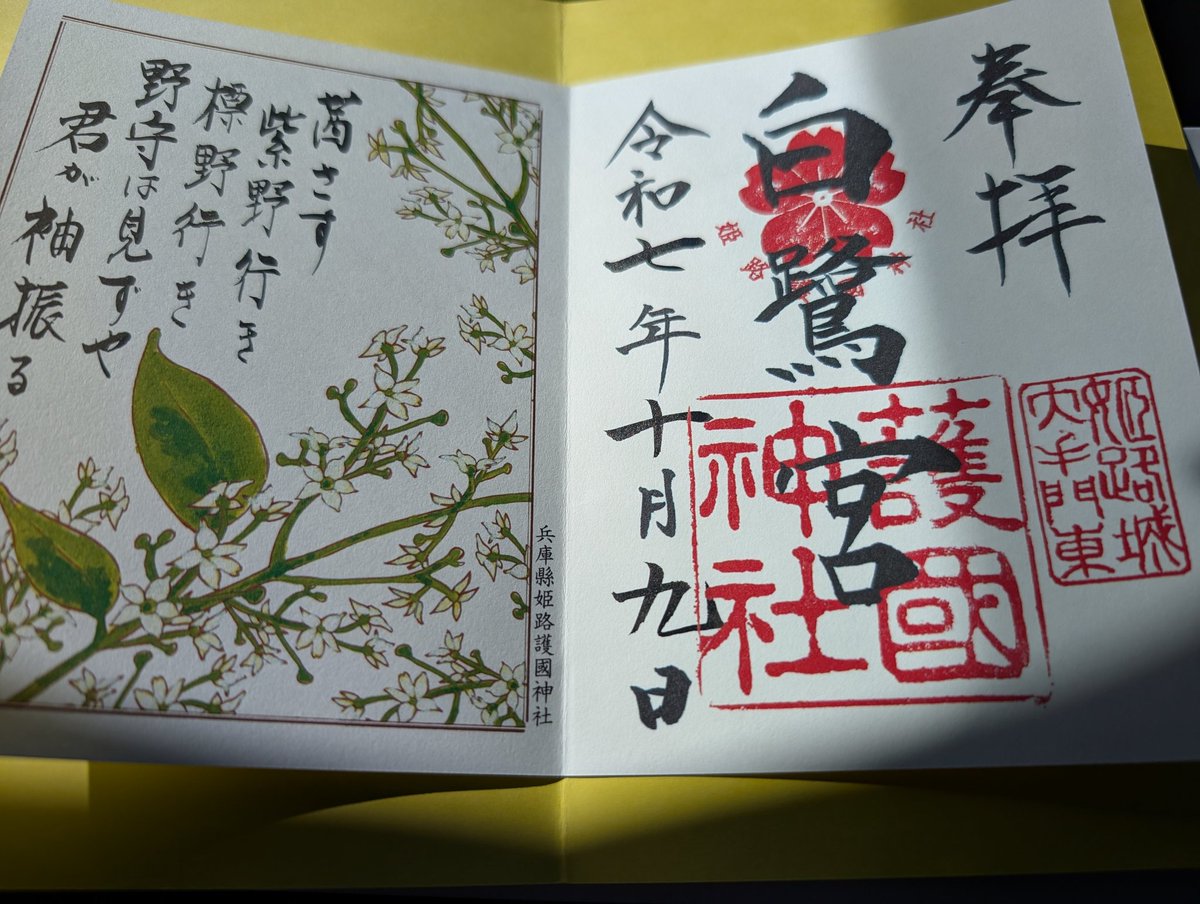 奉拝
白鷺宮
令和七年十月九日
姫路城
大手門東
護國
神社
茜さす
紫野行き
標野行き
野守は見ずや
君が袖振る
兵庫縣姫路護國神社